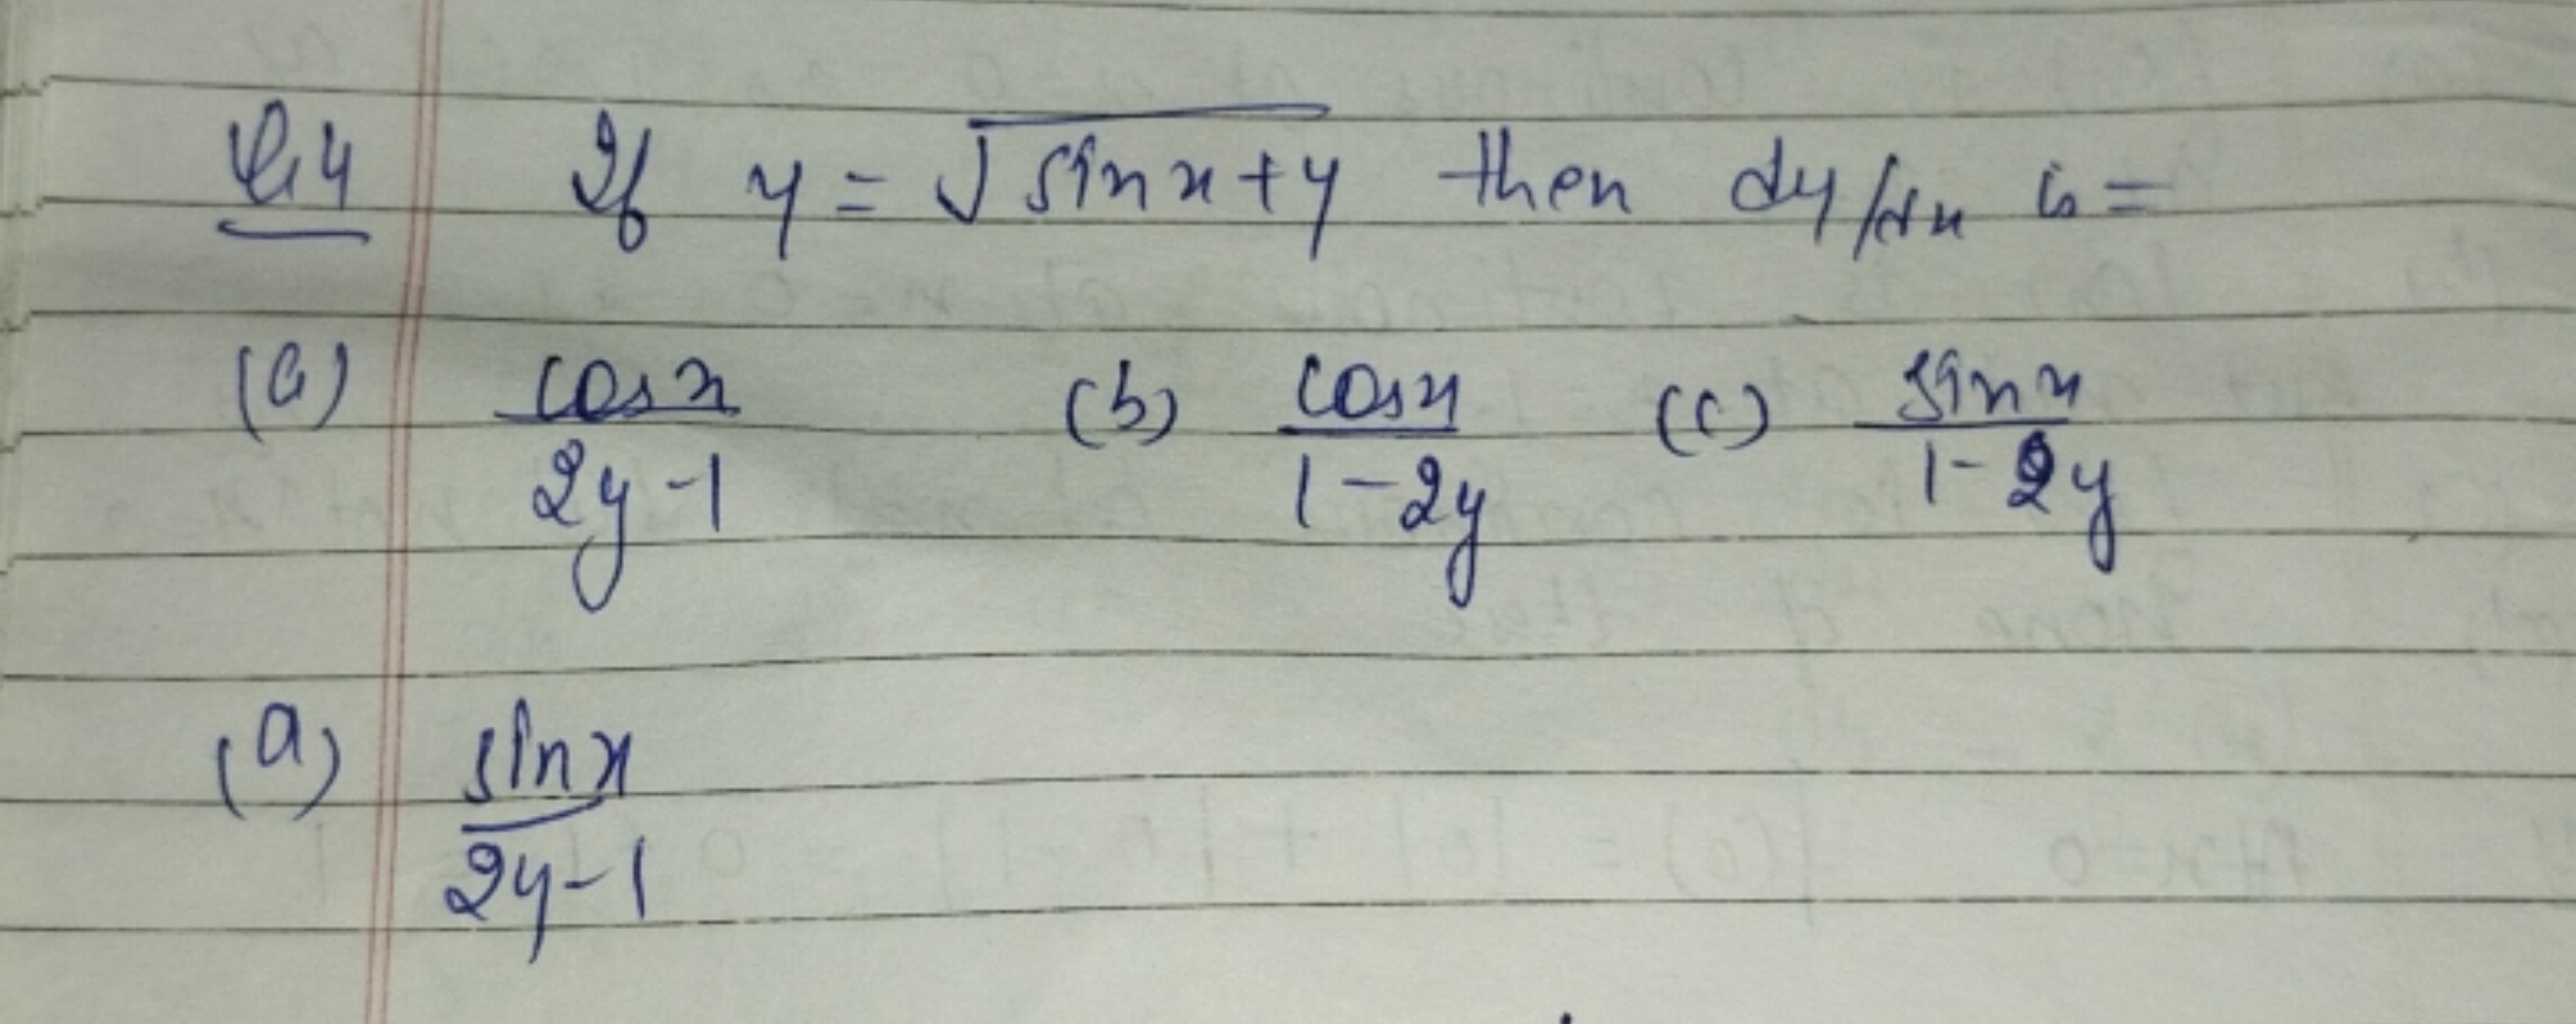 Q.4 If y = √(sinx+y) then dy/dx is =
(a) cosx/(2y-1) (b) cosx/(1-2y) (c) sinx/(1-2y)
(a) sinx/(2y-1)